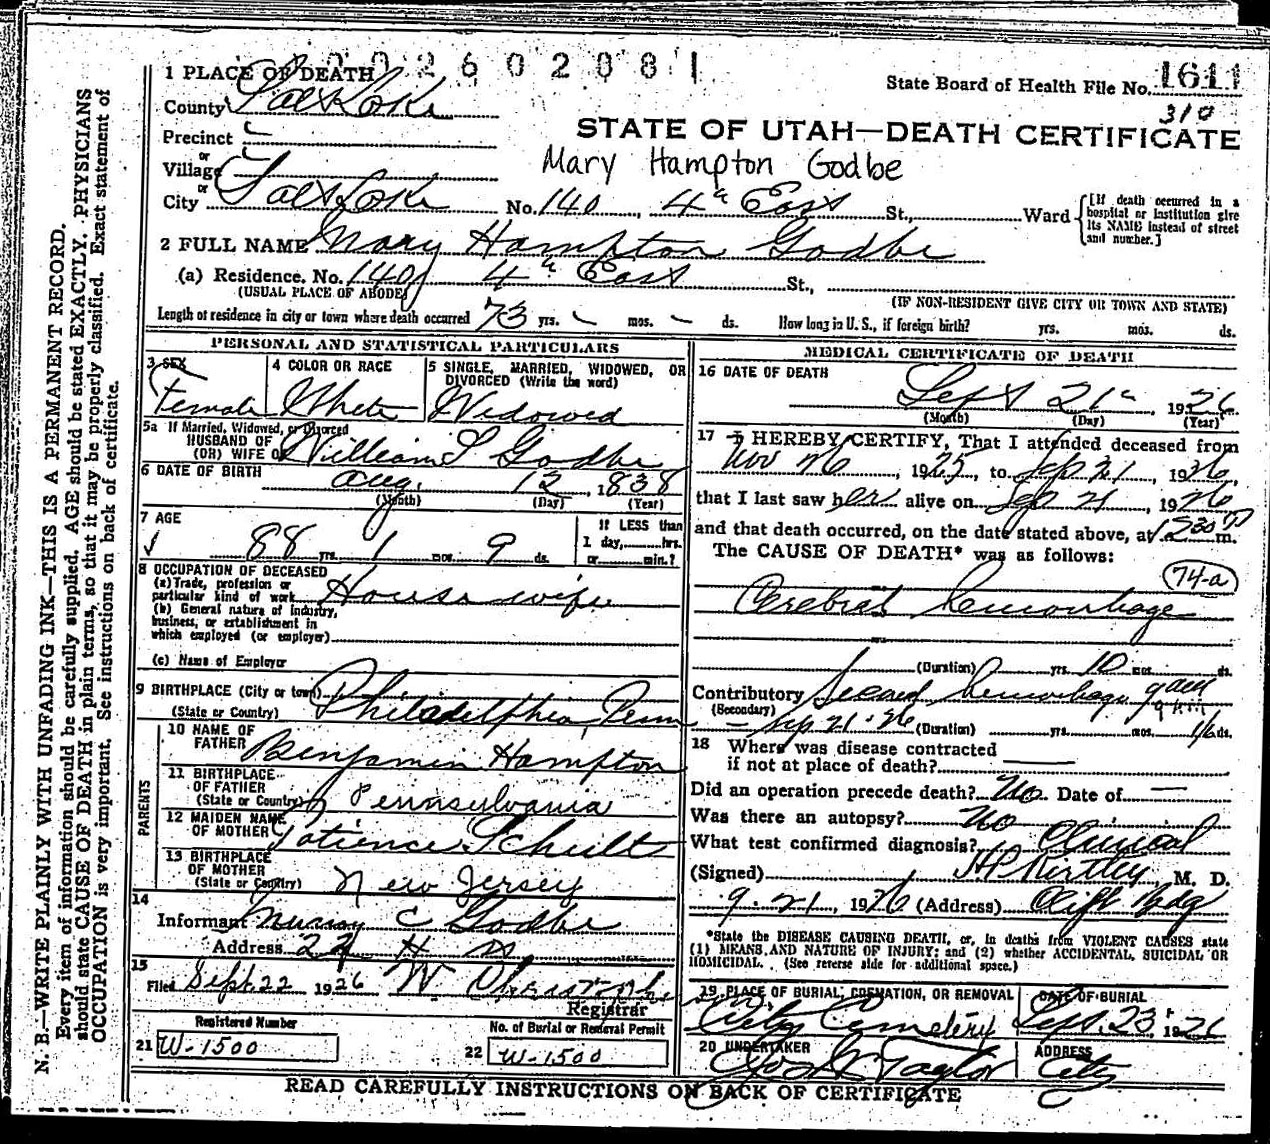 2602081
1 PLACE OF DEATH
State Board of Health File No. 1611
310
County Salt Lake
STATE OF UTAH—DEATH CERTIFICATE
Precinct
or
Mary Hampton Godbe
Village
or
City Salt Lake No. 140, 4th East St., Ward
[If death occurred in a hospital or institution give its NAME instead of street and number.]
2 FULL NAME Mary Hampton Godbe
(a) Residence. No. 140 4th East St.,
(USUAL PLACE OF ABODE)
(IF NON-RESIDENT GIVE CITY OR TOWN AND STATE)
Length of residence in city or town where death occurred 73 yrs. - mos. - ds. How long in U. S., if foreign birth? yrs. mos. ds.
PERSONAL AND STATISTICAL PARTICULARS
3 SEX
Female
4 COLOR OR RACE
White
5 SINGLE, MARRIED, WIDOWED, OR DIVORCED (Write the word)
Widowed
5a If Married, Widowed, or Divorced
HUSBAND OF
(OR) WIFE OF William S Godbe
6 DATE OF BIRTH Aug. 12, 1838
(Month) (Day) (Year)
7 AGE
88 yrs. 1 mos. 9 ds.
If LESS than
1 day, hrs.
or min.?
8 OCCUPATION OF DECEASED
(a) Trade, profession or
particular kind of work Housewife
(b) General nature of Industry,
business, or establishment in
which employed (or employer)
(c) Name of Employer
9 BIRTHPLACE (City or town) Philadelphia, Penn
(State or Country)
PARENTS
10 NAME OF
FATHER Benjamin Hampton
11 BIRTHPLACE
OF FATHER
(State or Country) Pennsylvania
12 MAIDEN NAME
OF MOTHER Patience
13 BIRTHPLACE
OF MOTHER
(State or Country) New Jersey
14
Informant Murray C Godbe
Address
15
Filed Sept. 22 1926 W Christopher
Registrar
Registered Number
21 W-1500
No. of Burial or Removal Permit
22 W-1500
MEDICAL CERTIFICATE OF DEATH
16 DATE OF DEATH
Sept 21st, 1926
(Month) (Day) (Year)
17 I HEREBY CERTIFY, That I attended deceased from
Nov 26, 1925 to Sep 21, 1926,
that I last saw her alive on Sep 21, 1926
and that death occurred, on the date stated above, at 1230 P m.
The CAUSE OF DEATH* was as follows:
74-a
Cerebral hemorrhage
(Duration) yrs. 10 mos. ds.
Contributory Second hemorrhage
(Secondary)
Sep 21-26 (Duration) yrs. mos. ds.
18 Where was disease contracted
if not at place of death?
Did an operation precede death? No Date of —
Was there an autopsy? No
What test confirmed diagnosis? Clinical
(Signed) H P Kirtley, M. D.
9-21, 1926 (Address) Clift Bldg
*State the DISEASE CAUSING DEATH, or, in deaths from VIOLENT CAUSES state
(1) MEANS AND NATURE OF INJURY; and (2) whether ACCIDENTAL, SUICIDAL OR
HOMICIDAL. (See reverse side for additional space.)
19 PLACE OF BURIAL, CREMATION, OR REMOVAL
City Cemetery
DATE OF BURIAL
Sept. 23, 1926
20 UNDERTAKER
Taylor
ADDRESS
City
READ CAREFULLY INSTRUCTIONS ON BACK OF CERTIFICATE
N. B.—WRITE PLAINLY WITH UNFADING INK—THIS IS A PERMANENT RECORD.
Every item of information should be carefully supplied. AGE should be stated EXACTLY. PHYSICIANS
should state CAUSE OF DEATH in plain terms, so that it may be properly classified. Exact statement of
OCCUPATION is very important. See instructions on back of certificate.